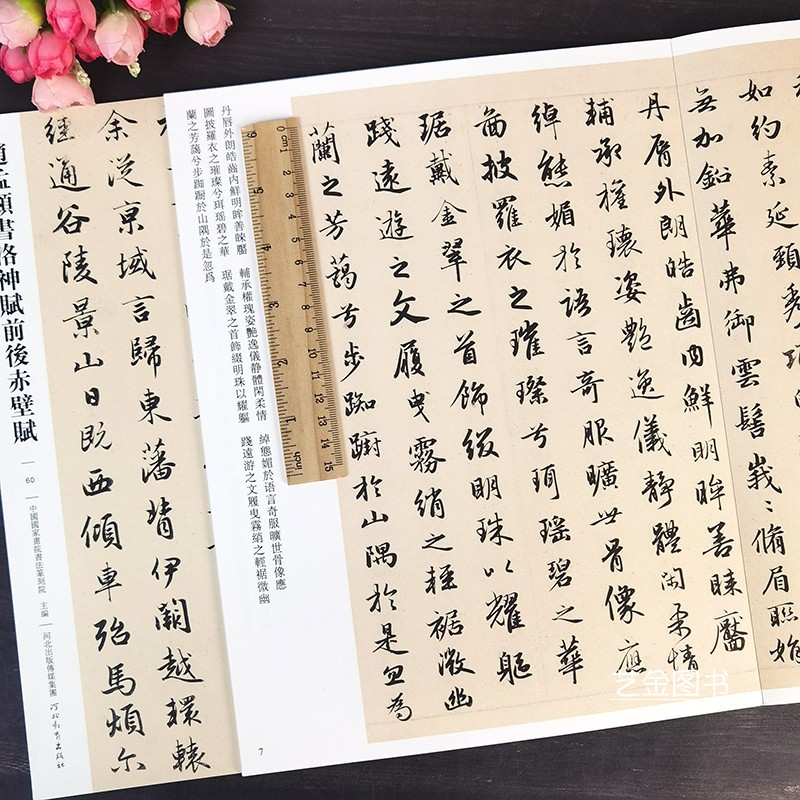 如約素延頸秀項
無加鉛華弗御雲髻峩〻脩眉聯娟
丹脣外朗皓齒内鮮明眸善睞靨
輔承權瓌姿艶逸儀静體閑柔情
綽態媚於語言奇服曠世骨像應
啚披羅衣之璀璨兮珥瑶碧之華
琚戴金翠之首飾綴明珠以耀軀
踐遠遊之文履曳霧綃之輕裾微幽
蘭之芳藹兮步踟躕於山隅於是忽為
丹唇外朗皓齒内鮮明眸善睞靨 輔承權瑰姿艶逸儀静體閑柔情 綽態媚於语言奇服曠世骨像應
圖披羅衣之璀璨兮珥瑶碧之華 琚戴金翠之首飾綴明珠以耀軀 踐遠游之文履曳霧綃之輕裾微幽
蘭之芳藹兮步踟躕於山隅於是忽爲
7
0 cm 1 2 3 4 5 6 7 8 9 10 11 12 13 14 15
余從京域言歸東藩背伊闕越轘轅
經通谷陵景山日既西傾車殆馬煩尔
趙孟頫書洛神賦前後赤壁賦
60
中國國家畫院書法篆刻院 主編
河北出版傳媒集團 河北教育出版社
艺金图书